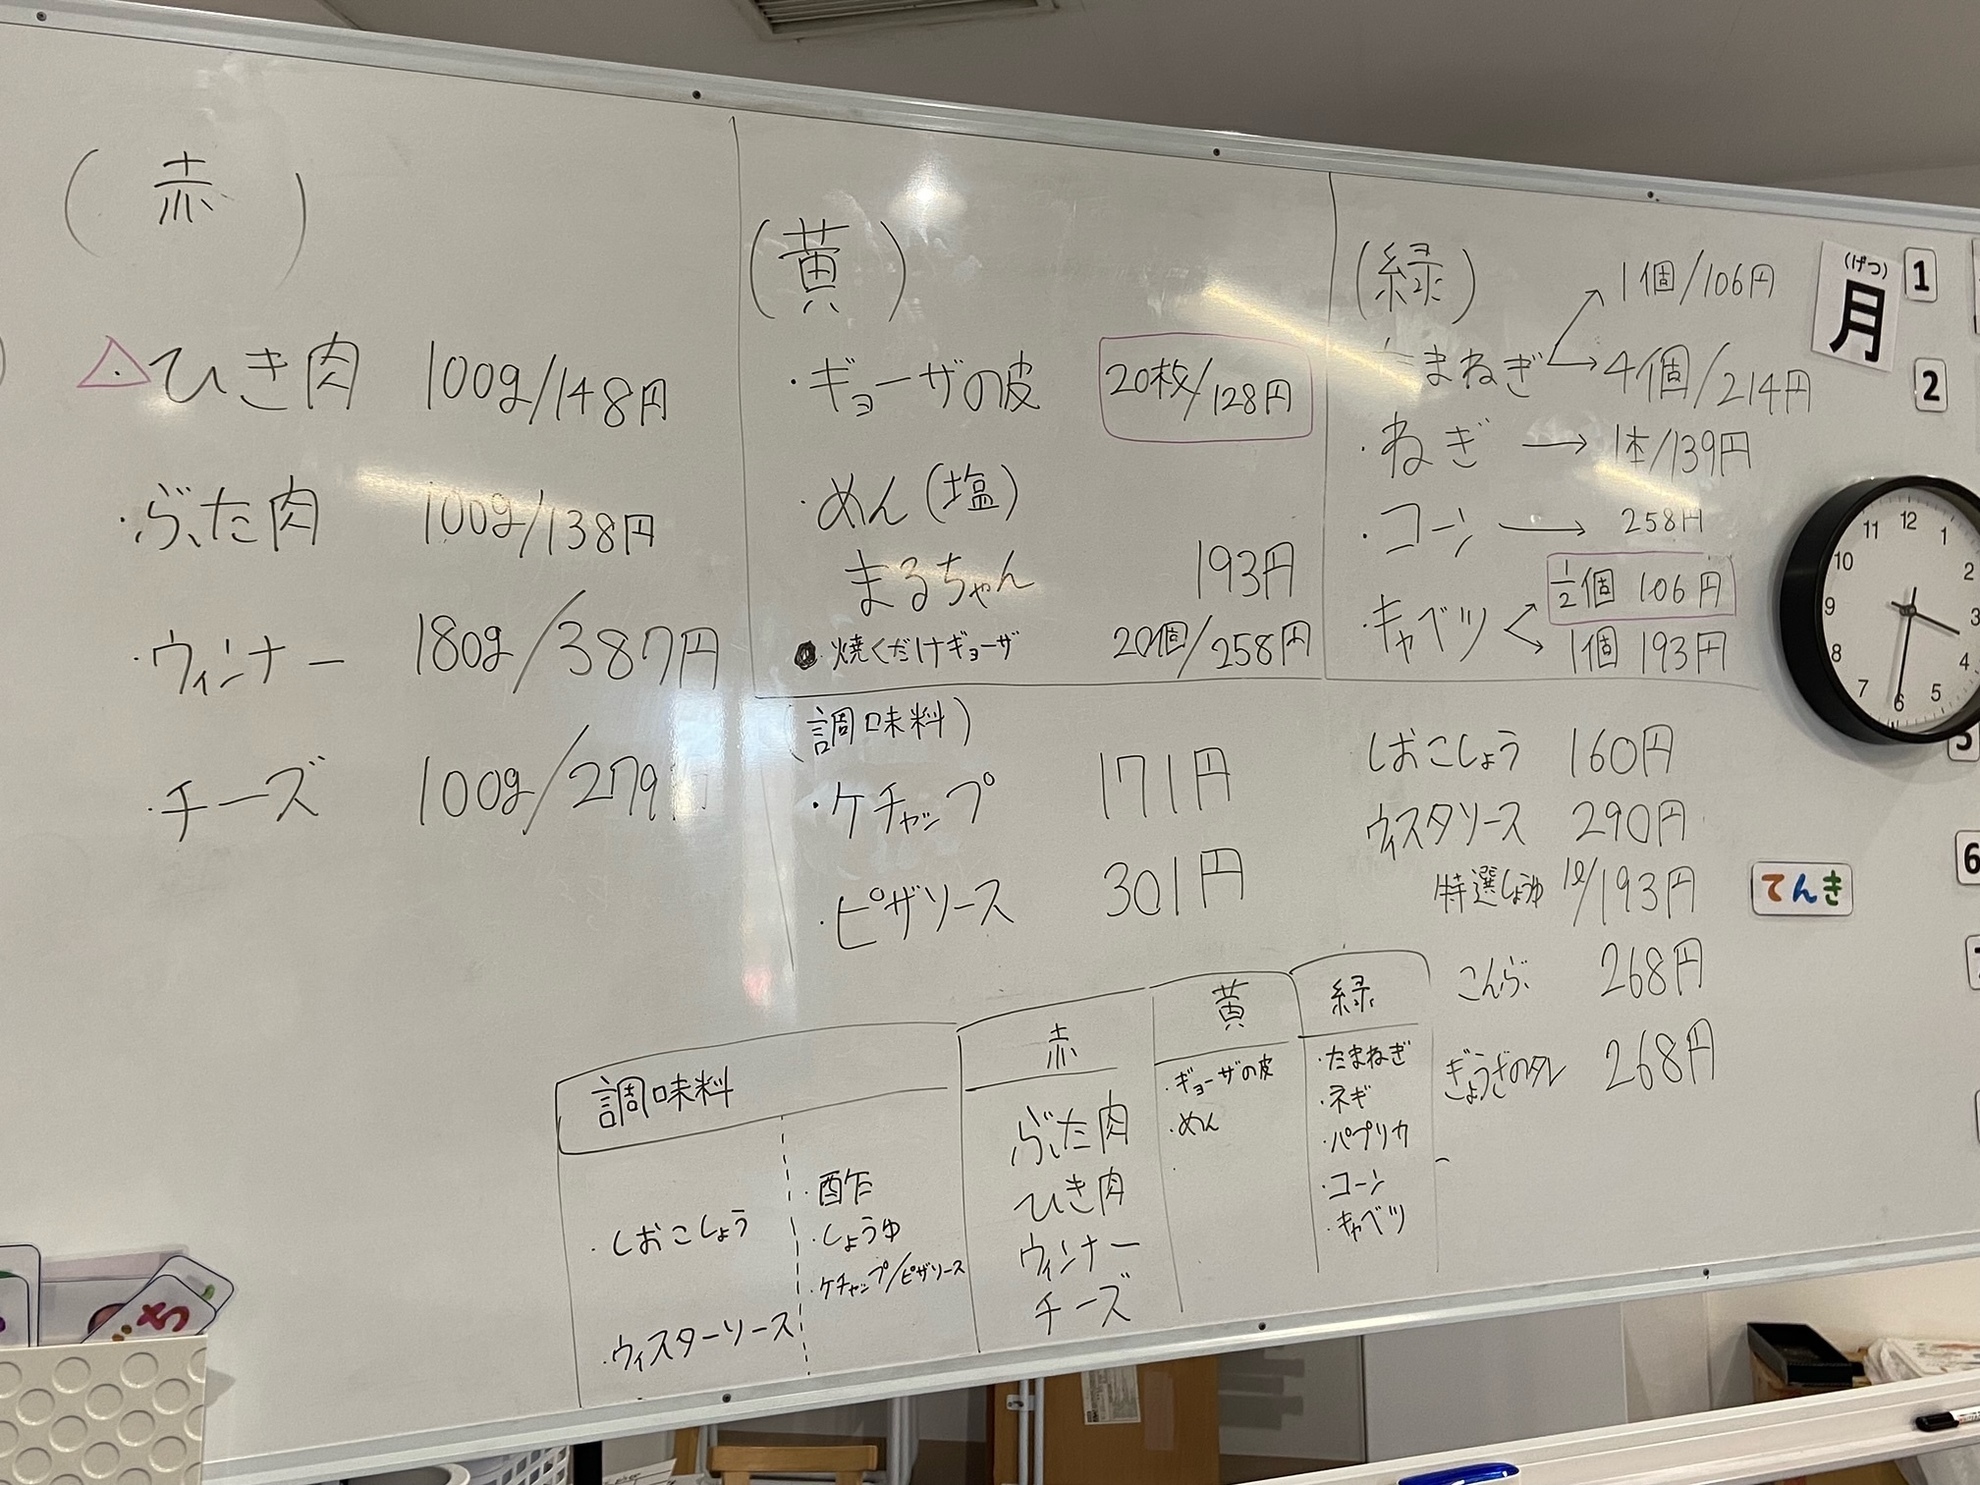 (赤)
・ひき肉 100g/148円
・ぶた肉 100g/138円
・ウィンナー 180g/387円
・チーズ 100g/279円
(黄)
・ギョーザの皮 20枚/128円
・めん(塩)
まるちゃん 193円
・焼くだけギョーザ 20個/258円
(緑)
1個/106円
たまねぎ→4個/214円
・ねぎ→1本/139円
・コーン→258円
1/2個 106円
・キャベツ
1個 193円
(調味料)
・ケチャップ 171円
・ピザソース 301円
しおこしょう 160円
ウィスタソース 290円
特選しょうゆ 1ℓ/193円
こんぶ 268円
ぎょうざのタレ 268円
調味料
・しおこしょう
・ウィスターソース
・酢
・しょうゆ
・ケチャップ/ピザソース
赤
ぶた肉
ひき肉
ウィンナー
チーズ
黄
・ギョーザの皮
・めん
緑
・たまねぎ
・ネギ
・パプリカ
・コーン
・キャベツ
(げつ)
月
1
2
5
6
てんき
12
1
2
3
4
5
6
7
8
9
10
11